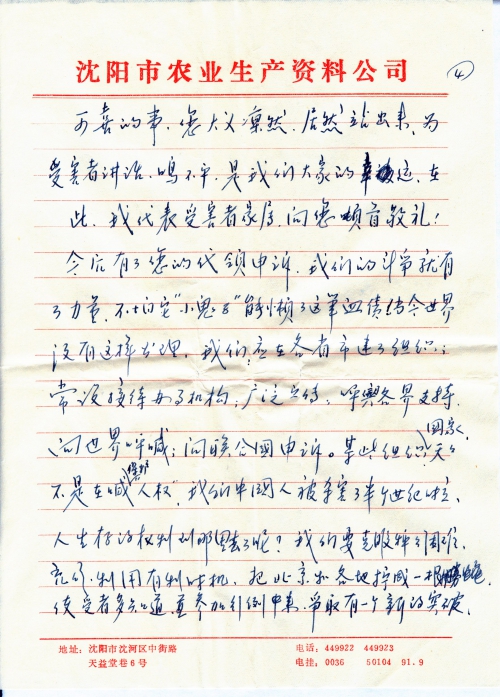 沈阳市农业生产资料公司
④
可喜的事,您大义凛然,居然站出来,为
受害者讲话,鸣不平,是我们大家的幸运,在
此,我代表受害者家属,向您顿首敬礼!
今后有了您的代领申诉,我们的斗争就有
了力量,不怕它"小鬼子"能够懒了这笔血债
世界
没有这样道理,我们应在各省市建立组织;
常设接待办事机构,广泛宣传,呼吁各界支持,
向世界呼喊;向联合国申诉。某些组织,国家,天天
不是在喊"保护人权",我们中国人被争害了半个世纪啦,
人生存的权利到那里去了呢?我们要克服种种困难,
充分利用有利时机,把北京和各地拧成一根
使受者多知道并参加到行列中来,争取有一个新的突破,
地址:沈阳市沈河区中街路
天益堂巷6号
电话:449922 449923
电挂:0036 50104 91.9